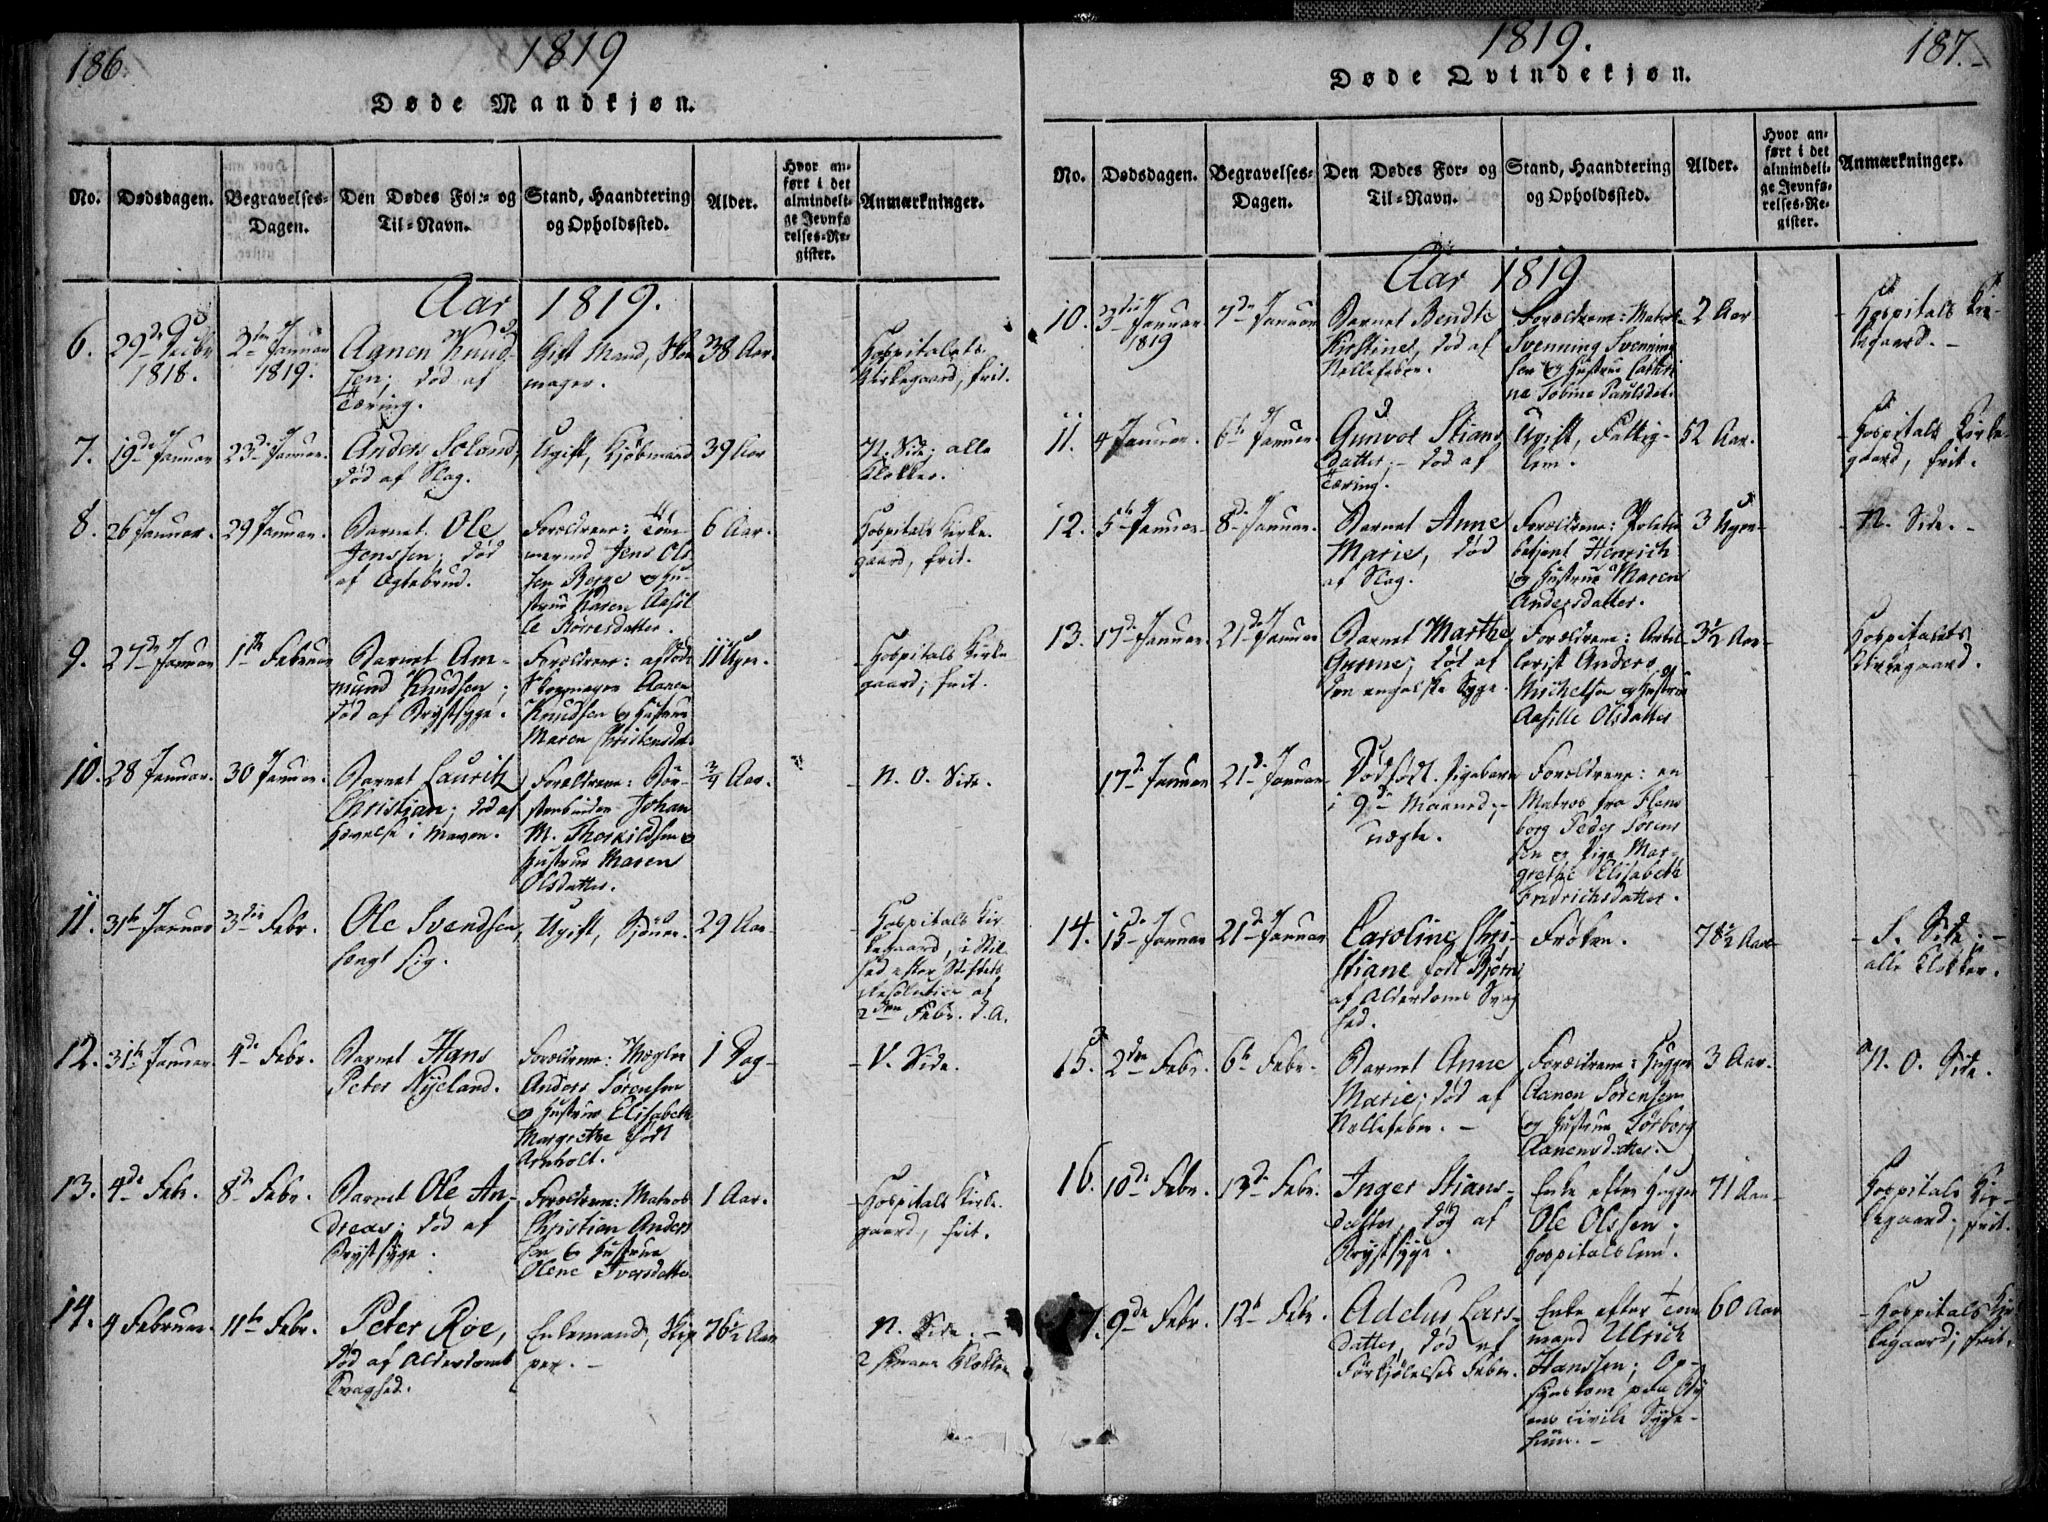 186.
1819
Døde Mandkjøn.
No.
Dødsdagen.
Begravelses-
Dagen.
Den Dødes For- og
Til-Navn.
Stand, Haandtering
og Opholdssted.
Alder.
Hvor an-
ført i det
almindeli-
ge Jevnfø
relses-Re-
gister.
Anmærkninger.
Aar 1819.
6.
29de
1818.
2den Januar
1819.
Aanen Knud-
sen; død af
Tæring.
Gift Mand, Skoe
mager.
38 Aar.
Hospitalets
Kirkegaard, frit.
7.
19de Januar
23de Januar.
Anders Soland,
død af Slag.
Ugift, Kjøbmand
39 Aar
N. Side; alle
Klokker.
8.
26 Januar.
29 Januar.
Barnet Ole
Jenssen; død
af Byldebrud.
Forældrene: Tøm
mermd Jens Ols
sen Berge og Hu-
strue Karen Aasil
le Børresdatter.
6 Aar.
Hospitals Kirke-
gaard, frit.
9.
27de Januar
1ste Februar
Barnet Am-
mund Knudsen;
død af Brystsyge.
Forældrene: afdøde
Skoemager Aanen
Knudsen og Hustrue
Maren Christensdat.
11 Uger.
Hospitals Kirke
gaard; frit.
10.
28 Januar.
30 Januar.
Barnet Lauritz
Christian; død af
Hævelse i Maven.
Forældrene: Bør-
stenbinder Johan
M. Thorkildsen og
Hustrue Maren
Olsdatter.
3/4 Aar.
N. O. Side.
11.
31te Januar
3die Febr.
Ole Svendsen,
hængt sig.
Ugift, Sjouer.
29 Aar
Hospitals Kir
kegaard, i Stil-
hed efter Stiftets
Resolution af
2den Febr. d. A.
12.
31te Januar.
4de Febr.
Barnet Hans
Peter Nyeland.
Forældrene: Mægler
Anders Sørensen
og Hustrue Elisabeth
Margrethe født
Arnholt.
1 Dag
V. Side.
13.
4de Febr.
8de Febr.
Barnet Ole An-
dreas; død af
Brystsyge.
Forældrene: Matros
Christian Anders
sen & Hustrue
Olene Iversdatter
1 Aar.
Hospitals Kirke-
gaard, frit.
14.
4 Februar.
11te Febr.
Peter Roe,
død af Alderdoms
Svaghed.
Enkemand, Skip
per.
76½ Aar
N. Side.
2 smaae Klokker
1819.
187.
Døde Qvindekjøn.
No.
Dødsdagen.
Begravelses-
Dagen.
Den Dødes For- og
Til-Navn.
Stand, Haandtering
og Opholdssted.
Alder.
Hvor an-
ført i det
almindeli-
ge Jevnfø-
relses-Re-
gister.
Anmærkninger.
Aar 1819
10.
3die Januar
1819
7de Januar
Barnet Bendte
Kirstine, død af
Nellefeber.
Forældrene: Matros
Svenning Svenning
sen og Hustrue Cathri
ne Tobine Paulsdat.
2 Aar
Hospitals Kir-
kegaard.
11.
4 Januar.
6te Januar.
Gunvor Stians
datter; død af
Tæring.
Ugift, Fattig-
lem.
52 Aar.
Hospitals Kirke-
gaard, frit.
12.
5te Januar
8de Januar.
Barnet Anne
Marie, død
af Slag.
Forældrene: Politie
betjent Henrich
og Hustrue Maren
Andersdatter.
3 Uger
N. Side.
13.
17de Januar.
21de Januar
Barnet Marthe
Gurine; død af
den engelske Syge.
Forældrene: Artil-
lerist Anders
Michelsen og Hustrue
Aasille Olsdatter
3½ Aar
Hospitalets
Kirkegaard.
17de Januar
21de Januar
Dødfødt Pigebarn
i 9de Maaned;
uægte.
Forældrene: en
Matros fra Flens
borg Peder Søren
sen og Pige Mar-
grethe Elisabeth
Fridrichsdatter.
14.
15de Januar
21de Januar
Caroline Chri-
stiane født Bjørn
af Alderdoms Svag
hed.
Frøken.
78½ Aar
S. Side.
alle Klokker.
15.
2den Febr.
6te Febr.
Barnet Anne
Marie; død af
Nellefeber.
Forældrene: Hugger
Aanon Sørensen
og Hustrue Torborg
Aanensdatter.
3 Aar.
N. O. Side.
16.
10de Febr.
13de Febr.
Inger Stians-
datter, død af
Brystsyge.
Enke efter Hugger
Ole Olssen;
Hospitalslem.
71 Aar
Hospitals Kir-
kegaard; frit.
17.
9de Febr.
12te Febr.
Adelus Lars-
datter, død af
Forkjølelses Feber.
Enke efter Tom
mand Ulrich
Hanssen; Op-
synskone paa By
ens civile Syge-
huus.
60 Aar
Hospitals Kir
kegaard; frit.